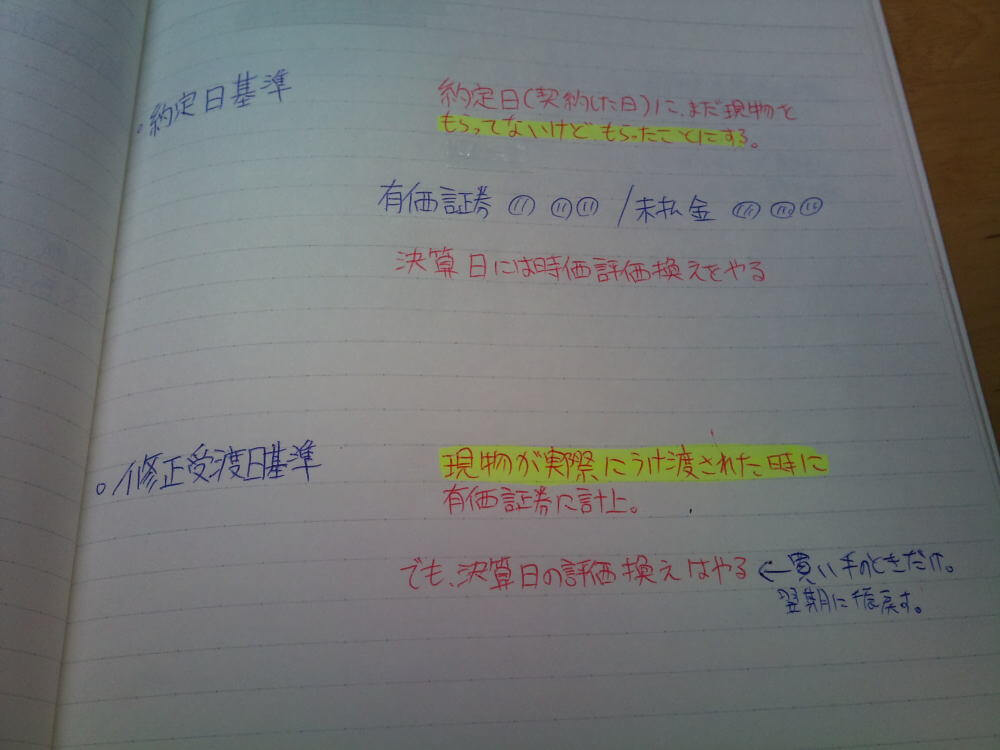 ・約定日基準
約定日(契約した日)に、まだ現物を
もらってないけど もらったことにする。
有価証券 /未払金
決算日には時価評価換えをやる
○修正受渡日基準
現物が実際にうけ渡された時に
有価証券に計上。
でも、決算日の評価換えはやる ←買い手のときだけ。
翌期に振戻す。